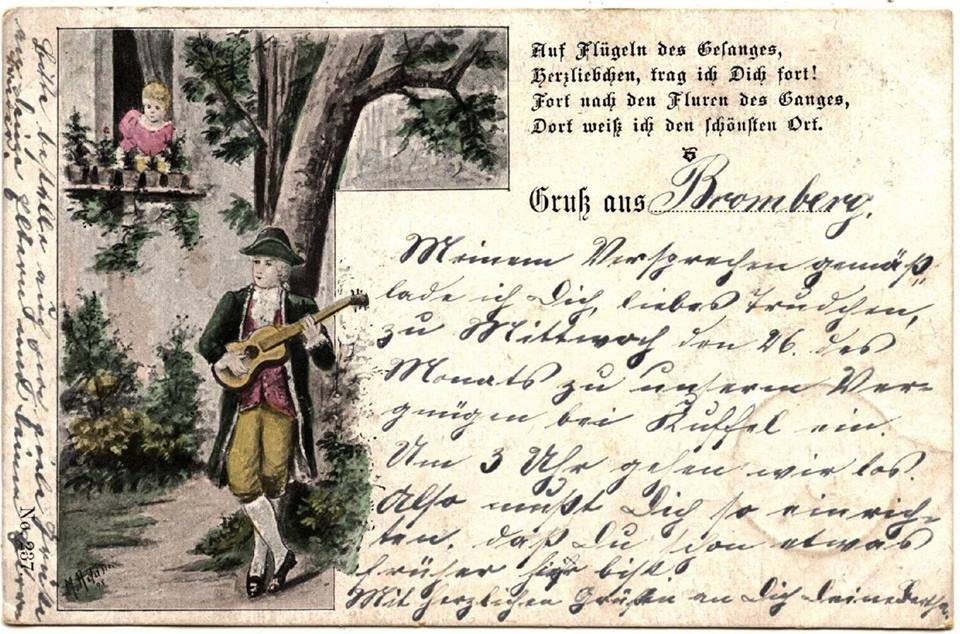 Auf Flügeln des Gesanges,
Herzliebchen, trag ich Dich fort!
Fort nach den Fluren des Ganges,
Dort weiß ich den schönsten Ort.
Gruß aus Bromberg.
Meinem Versprechen gemäß
lade ich Dich, liebes Trudchen,
zu Mittwoch den 26. des
Monats zu unserm Ver-
gnügen bei Kuffel ein.
Um 3 Uhr gehen wir los.
Also mußt Dich so einrich-
ten, daß Du schon etwas
früher hier bist.
Mit herzlichen Grüßen an Dich Deine
Bitte bestelle auch viele Grüße
an Deine Eltern und
No. 237.